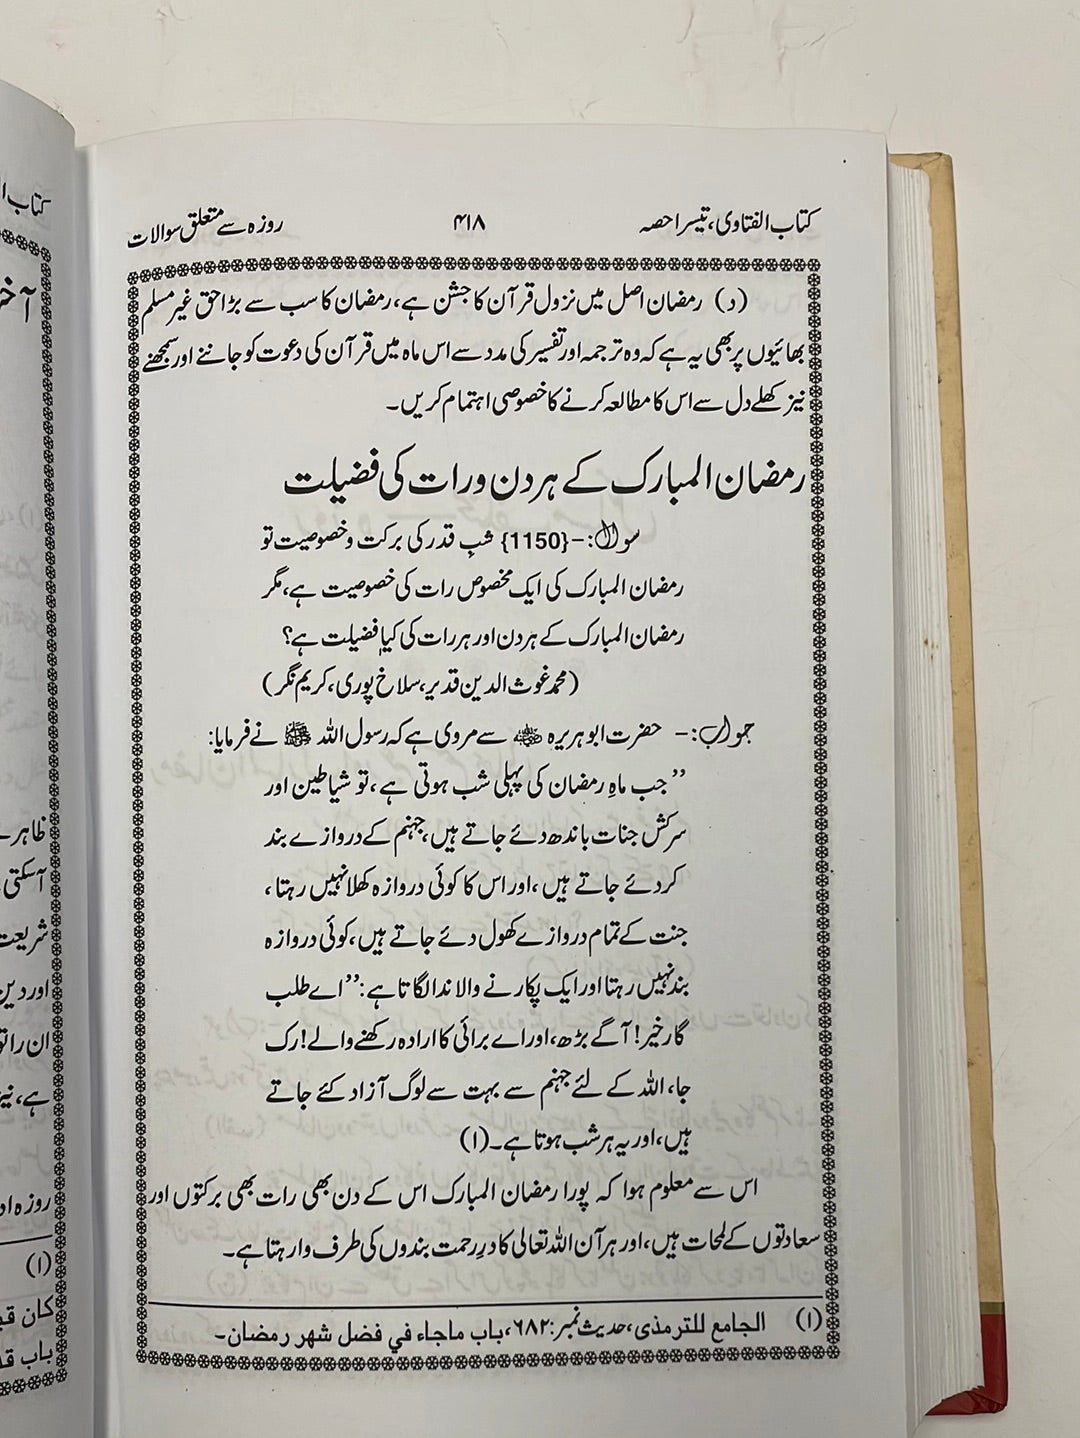 کتاب الفتاوی، تیسرا حصہ ۴۱۸ روزہ سے متعلق سوالات
(د) رمضان اصل میں نزول قرآن کا جشن ہے، رمضان کا سب سے بڑا حق غیر مسلم
بھائیوں پر بھی یہ ہے کہ وہ ترجمہ اور تفسیر کی مدد سے اس ماہ میں قرآن کی دعوت کو جاننے اور سمجھنے
نیز کھلے دل سے اس کا مطالعہ کرنے کا خصوصی اہتمام کریں۔
رمضان المبارک کے ہر دن و رات کی فضیلت
سوال:- {1150} شبِ قدر کی برکت و خصوصیت تو
رمضان المبارک کی ایک مخصوص رات کی خصوصیت ہے، مگر
رمضان المبارک کے ہر دن اور ہر رات کی کیا فضیلت ہے؟
(محمد غوث الدین قدیر، سلاخ پوری، کریم نگر)
جواب:- حضرت ابو ہریرہ ؓ سے مروی ہے کہ رسول اللہ ﷺ نے فرمایا:
”جب ماہِ رمضان کی پہلی شب ہوتی ہے، تو شیاطین اور
سرکش جنات باندھ دئے جاتے ہیں، جہنم کے دروازے بند
کر دئے جاتے ہیں، اور اس کا کوئی دروازہ کھلا نہیں رہتا،
جنت کے تمام دروازے کھول دئے جاتے ہیں، کوئی دروازہ
بند نہیں رہتا اور ایک پکارنے والا ندا لگاتا ہے: ”اے طلب
گارِ خیر! آگے بڑھ، اور اے برائی کا ارادہ رکھنے والے! رک
جا، اللہ کے لئے جہنم سے بہت سے لوگ آزاد کئے جاتے
ہیں، اور یہ ہر شب ہوتا ہے۔ (۱)
اس سے معلوم ہوا کہ پورا رمضان المبارک اس کے دن بھی رات بھی برکتوں اور
سعادتوں کے لمحات ہیں، اور ہر آن اللہ تعالی کا درِ رحمت بندوں کی طرف وا رہتا ہے۔
(۱) الجامع للترمذی، حدیث نمبر: ۶۸۲، باب ماجاء في فضل شهر رمضان۔
کتاب
آخر
ظاہر ہے
آسکتی
شریعت
اور دین
ان راتو
ہے، نیز
روزہ اد
(۱)
کان
باب